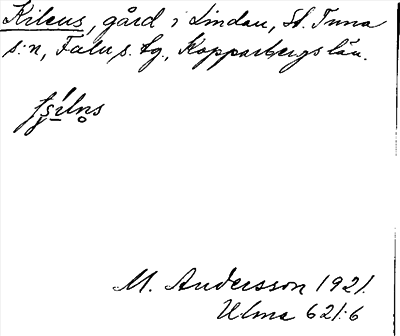 Kileus, gård i Lindan, St. Tuna
s:n, Falu s. lg., Kopparbergs län.
M. Andersson 1921.
Ulma 621:6